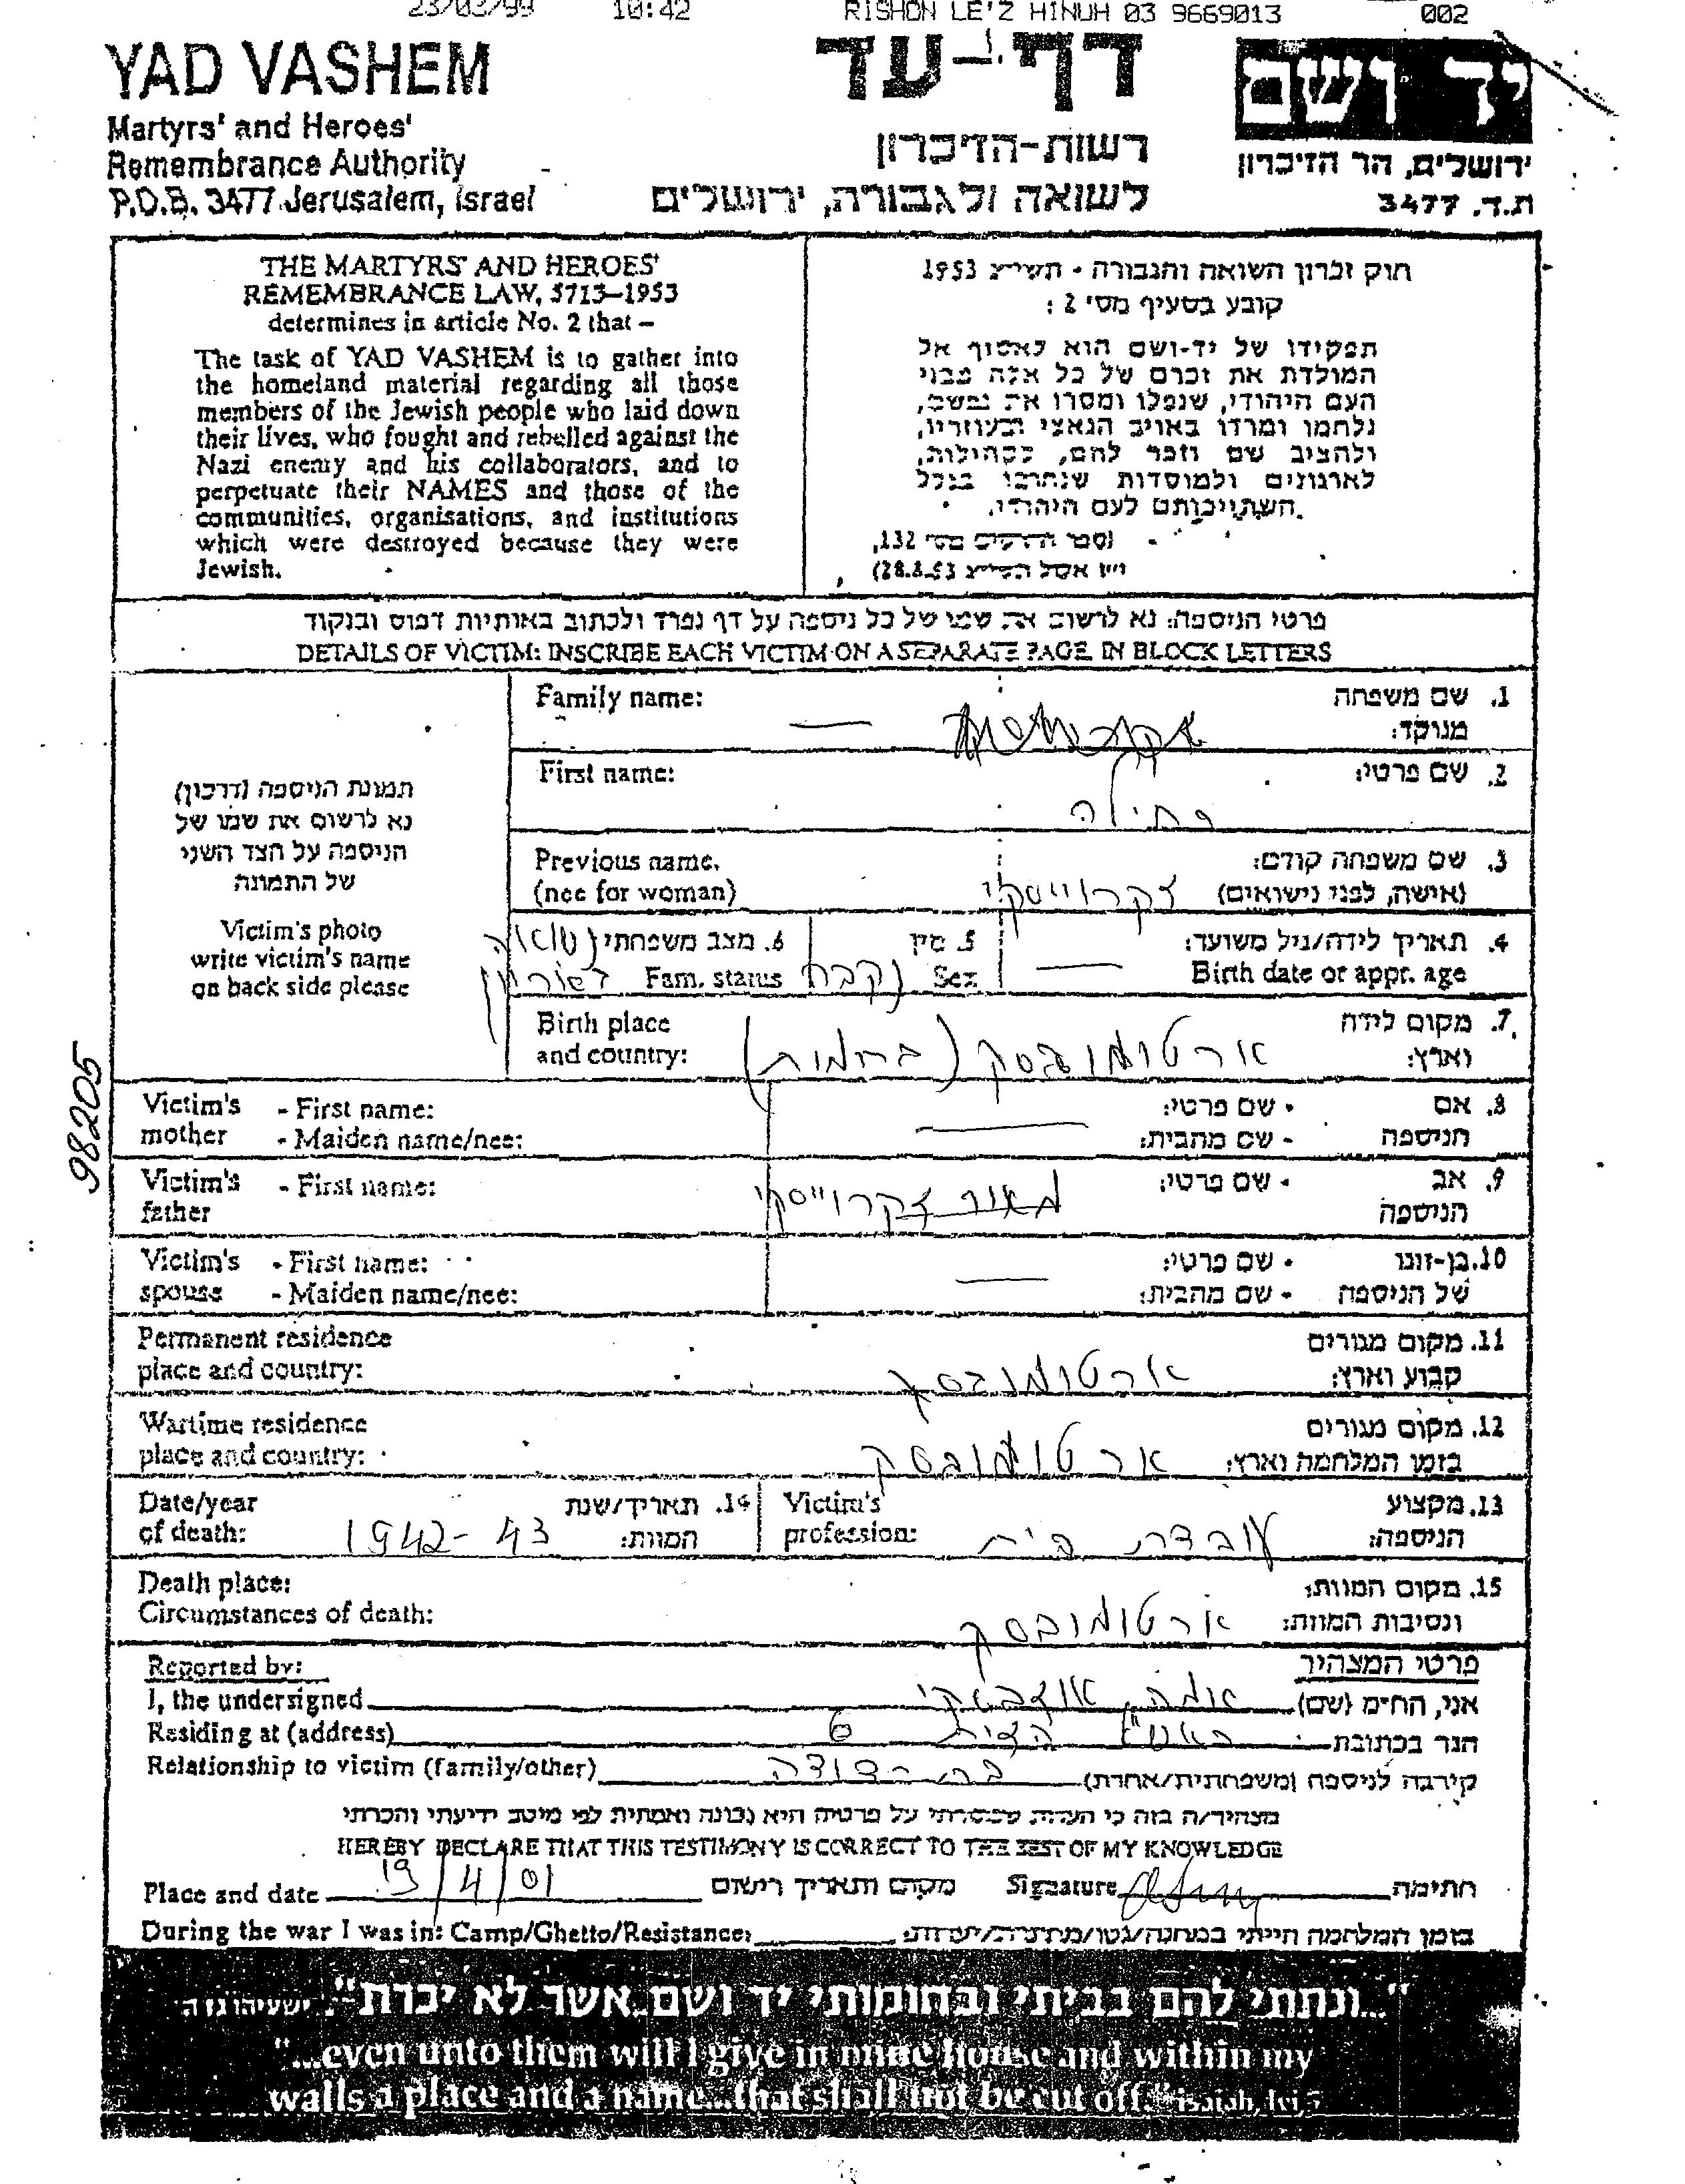 23/03/99 10:42 RISHON LE'Z HINUH 03 9669013 002
YAD VASHEM
דף-עד
יד ושם
Martyrs' and Heroes'
Remembrance Authority
P.O.B. 3477 Jerusalem, Israel
רשות-הזיכרון
לשואה ולגבורה, ירושלים
ירושלים, הר הזיכרון
ת.ד. 3477
THE MARTYRS' AND HEROES'
REMEMBRANCE LAW, 5713–1953
determines in article No. 2 that –
The task of YAD VASHEM is to gather into
the homeland material regarding all those
members of the Jewish people who laid down
their lives, who fought and rebelled against the
Nazi enemy and his collaborators, and to
perpetuate their NAMES and those of the
communities, organisations, and institutions
which were destroyed because they were
Jewish.
חוק זכרון השואה והגבורה - תשי"ג 1953
קובע בסעיף מס' 2 :
תפקידו של יד-ושם הוא לאסוף אל
המולדת את זכרם של כל אלה מבני
העם היהודי, שנפלו ומסרו את נפשם,
נלחמו ומרדו באויב הנאצי ובעוזריו,
ולהציב שם וזכר להם, לקהילות,
לארגונים ולמוסדות שנחרבו בגלל
השתייכותם לעם היהודי.
(ספר החוקים מס' 132,
28.8.53)
פרטי הניספה: נא לרשום את שמו של כל ניספה על דף נפרד ולכתוב באותיות דפוס ובנקוד
DETAILS OF VICTIM: INSCRIBE EACH VICTIM ON A SEPARATE PAGE IN BLOCK LETTERS
תמונת הניספה (דרכון)
נא לרשום את שמו של
הניספה על הצד השני
של התמונה
Victim's photo
write victim's name
on back side please
98205
Family name: — 1. שם משפחה
מנוקד:
First name: 2. שם פרטי:
רחילה
Previous name, 3. שם משפחה קודם:
(nee for woman) צקרוייסקי (אישה, לפני נישואים)
4. תאריך לידה/גיל משוער: —
Birth date or appr. age
5. מין נקבה
Sex
6. מצב משפחתי נשואה
Fam. status
Birth place 7. מקום לידה
and country: ארטומובסק (בחמות) וארץ:
Victim's - First name: - שם פרטי: 8. אם
mother - Maiden name/nee: — - שם מהבית: הניספה
Victim's - First name: מאיר צקרוייסקי - שם פרטי: 9. אב
father הניספה
Victim's - First name: - שם פרטי: 10. בן-זוגו
spouse - Maiden name/nee: — - שם מהבית: של הניספה
Permanent residence 11. מקום מגורים
place and country: ארטומובסק קבוע וארץ:
Wartime residence 12. מקום מגורים
place and country: ארטומובסק בזמן המלחמה וארץ:
Date/year 14. תאריך/שנת
of death: 1942-43 המוות:
Victim's 13. מקצוע
profession: עובדת בית הניספה:
Death place: 15. מקום המוות:
Circumstances of death: ארטומובסק ונסיבות המוות:
Reported by: פרטי המצהיר
I, the undersigned אני, הח"מ (שם)
Residing at (address) 6 הגר בכתובת
Relationship to victim (family/other) בת-דודה קירבה לניספה (משפחתית/אחרת)
מצהיר/ה בזה כי העדות שמסרתי על פרטיה היא נכונה ואמתית לפי מיטב ידיעתי והכרתי
HEREBY DECLARE THAT THIS TESTIMONY IS CORRECT TO THE BEST OF MY KNOWLEDGE
Place and date 19/4/01 מקום ותאריך רישום Signature חתימה
During the war I was in: Camp/Ghetto/Resistance: בזמן המלחמה הייתי במחנה/גטו/מחתרת/יערות:
"...ונתתי להם בביתי ובחומותי יד ושם אשר לא יכרת" ישעיהו נו ה
"...even unto them will I give in mine house and within my
walls a place and a name...that shall not be cut off." Isaiah, lvi, 5